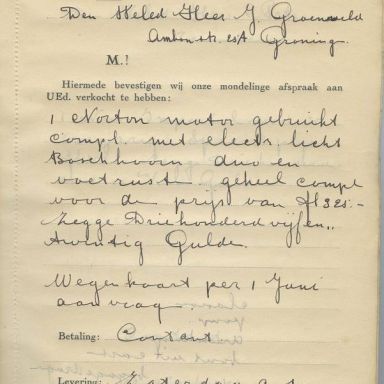 Den Weled Heer J. Groeneveld
Ambonstr. 25A Groning.
M.!
Hiermede bevestigen wij onze mondelinge afspraak aan
UEd. verkocht te hebben:
1 Norton motor gebruikt
compl. met electr. licht
Boschhoorn duo en
voetrust. geheel compl
voor de prijs van fl 325.-
Zegge Driehonderd vijfen,,
twintig Gulde.
Wegenkaart per 1 Juni
aanvraag.
Betaling: Contant
Levering: Zaterdag